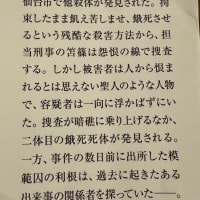 仙台市で他殺体が発見された。拘
束したまま飢え苦しませ、餓死させ
るという残酷な殺害方法から、担
当刑事の笘篠は怨恨の線で捜査
する。しかし被害者は人から恨まれ
るとは思えない聖人のような人物
で、容疑者は一向に浮かばずにい
た。捜査が暗礁に乗り上げるなか、
二体目の餓死死体が発見される。
一方、事件の数日前に出所した模
範囚の利根は、過去に起きたある
出来事の関係者を探っていた――。